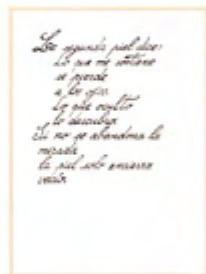 La segunda piel dice:
Lo que me contiene
se pierde
a los ojos.
Lo que oculto
lo descubro.
Si no se abandona la
mirada
la piel solo encierra
vacío